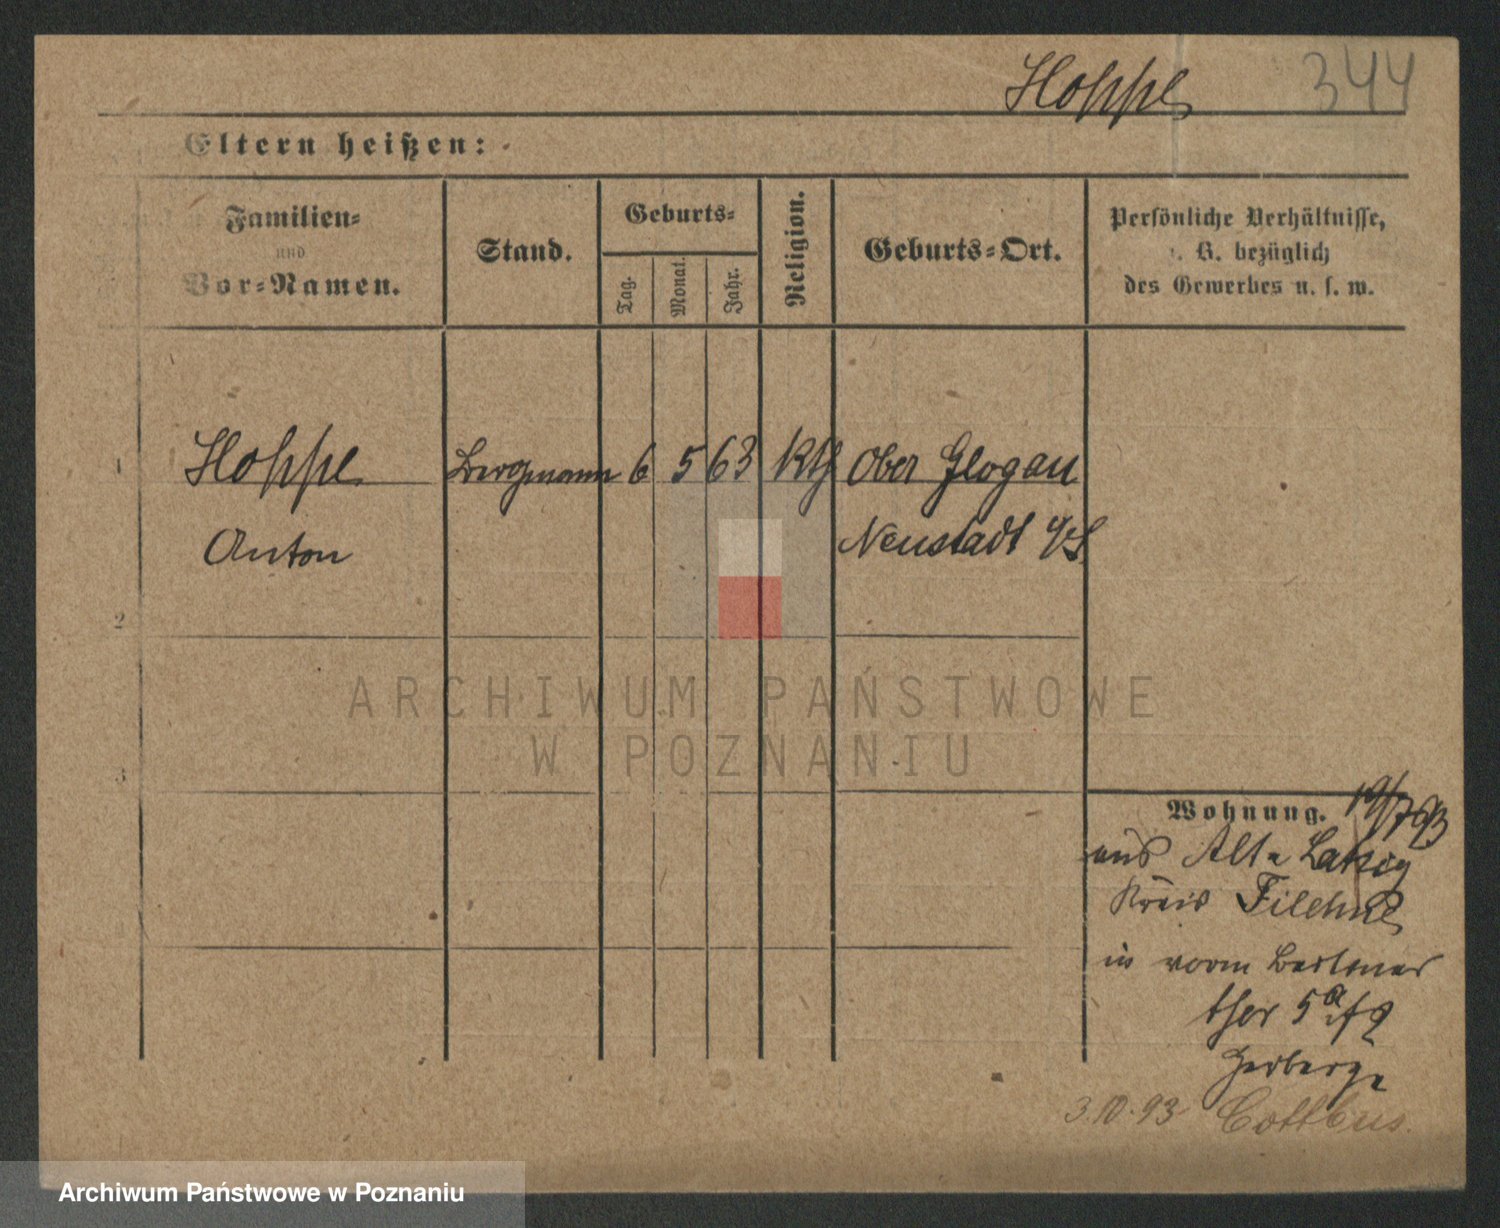 Hoppe 344
Eltern heißen:
Familien=
und
Vor=Namen.
Stand.
Geburts=
Tag.
Monat.
Jahr.
Religion.
Geburts=Ort.
Persönliche Verhältnisse,
z. B. bezüglich
des Gewerbes u. s. w.
1 Hoppe Bergmann 6 5 63 Kth Ober Glogau
Anton Neustadt O/S.
2
3
ARCHIWUM PAŃSTWOWE
W POZNANIU
Wohnung. 19/7 93
aus Alt= Latzig
Kreis Filehne
in vorm Berliner
thor 5a
Herberge
3.10.93 Cottbus.
Archiwum Państwowe w Poznaniu